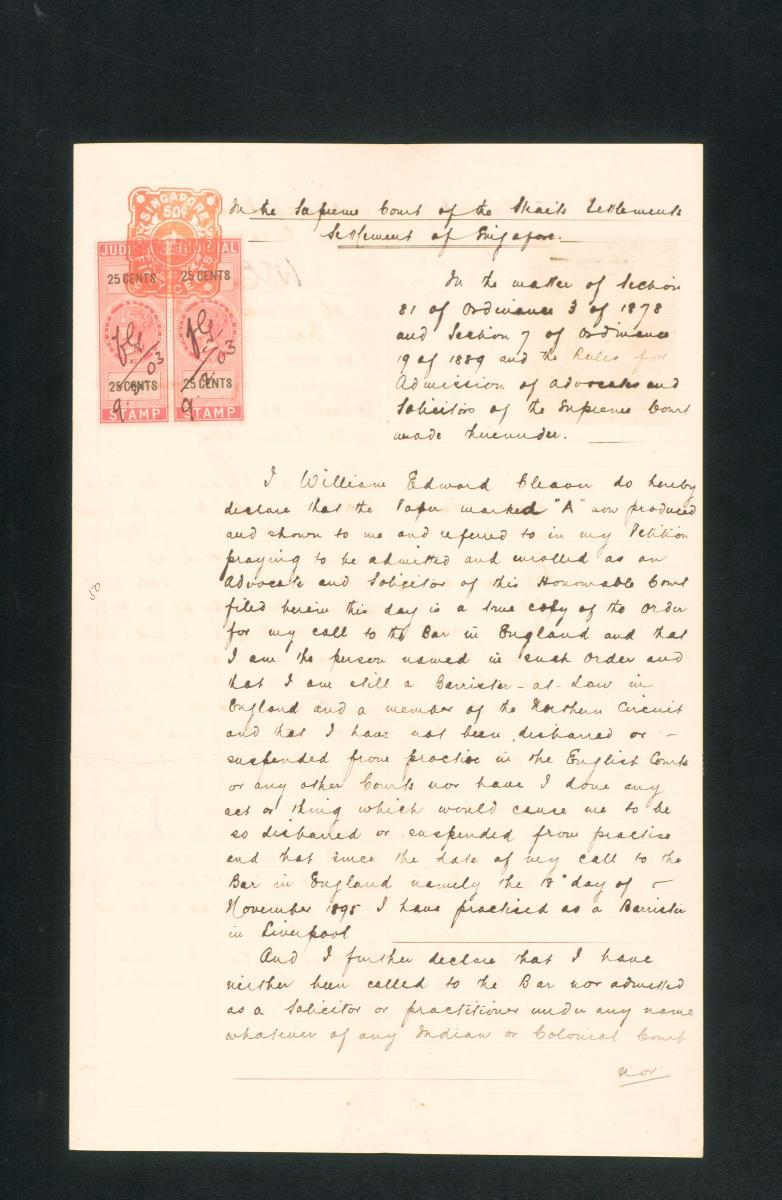 SINGAPORE
50c
JUDICIAL
25 CENTS 25 CENTS
25 CENTS 25 CENTS
9. 2. 03 9. 2. 03
STAMP STAMP
In the Supreme Court of the Straits Settlements
Settlement of Singapore.
In the matter of Section
81 of Ordinance 3 of 1878
and Section 7 of Ordinance
19 of 1889 and the Rules for
Admission of Advocates and
Solicitors of the Supreme Court
made hereunder.
I William Edward Cleaver do hereby
declare that the Paper marked "A" now produced
and shown to me and referred to in my Petition
praying to be admitted and enrolled as an
Advocate and Solicitor of this Honourable Court
filed herein this day is a true copy of the Order
for my call to the Bar in England and that
I am the person named in such Order and
that I am still a Barrister-at-Law in
England and a member of the Northern Circuit
and that I have not been disbarred or -
suspended from practice in the English Courts
or any other Courts nor have I done any
act or thing which would cause me to be
so disbarred or suspended from practise
and that since the date of my call to the
Bar in England namely the 18 day of
November 1895 I have practised as a Barrister
in Liverpool
And I further declare that I have
neither been called to the Bar nor admitted
as a Solicitor or practitioner under any name
whatever of any Indian or Colonial Court
nor
50